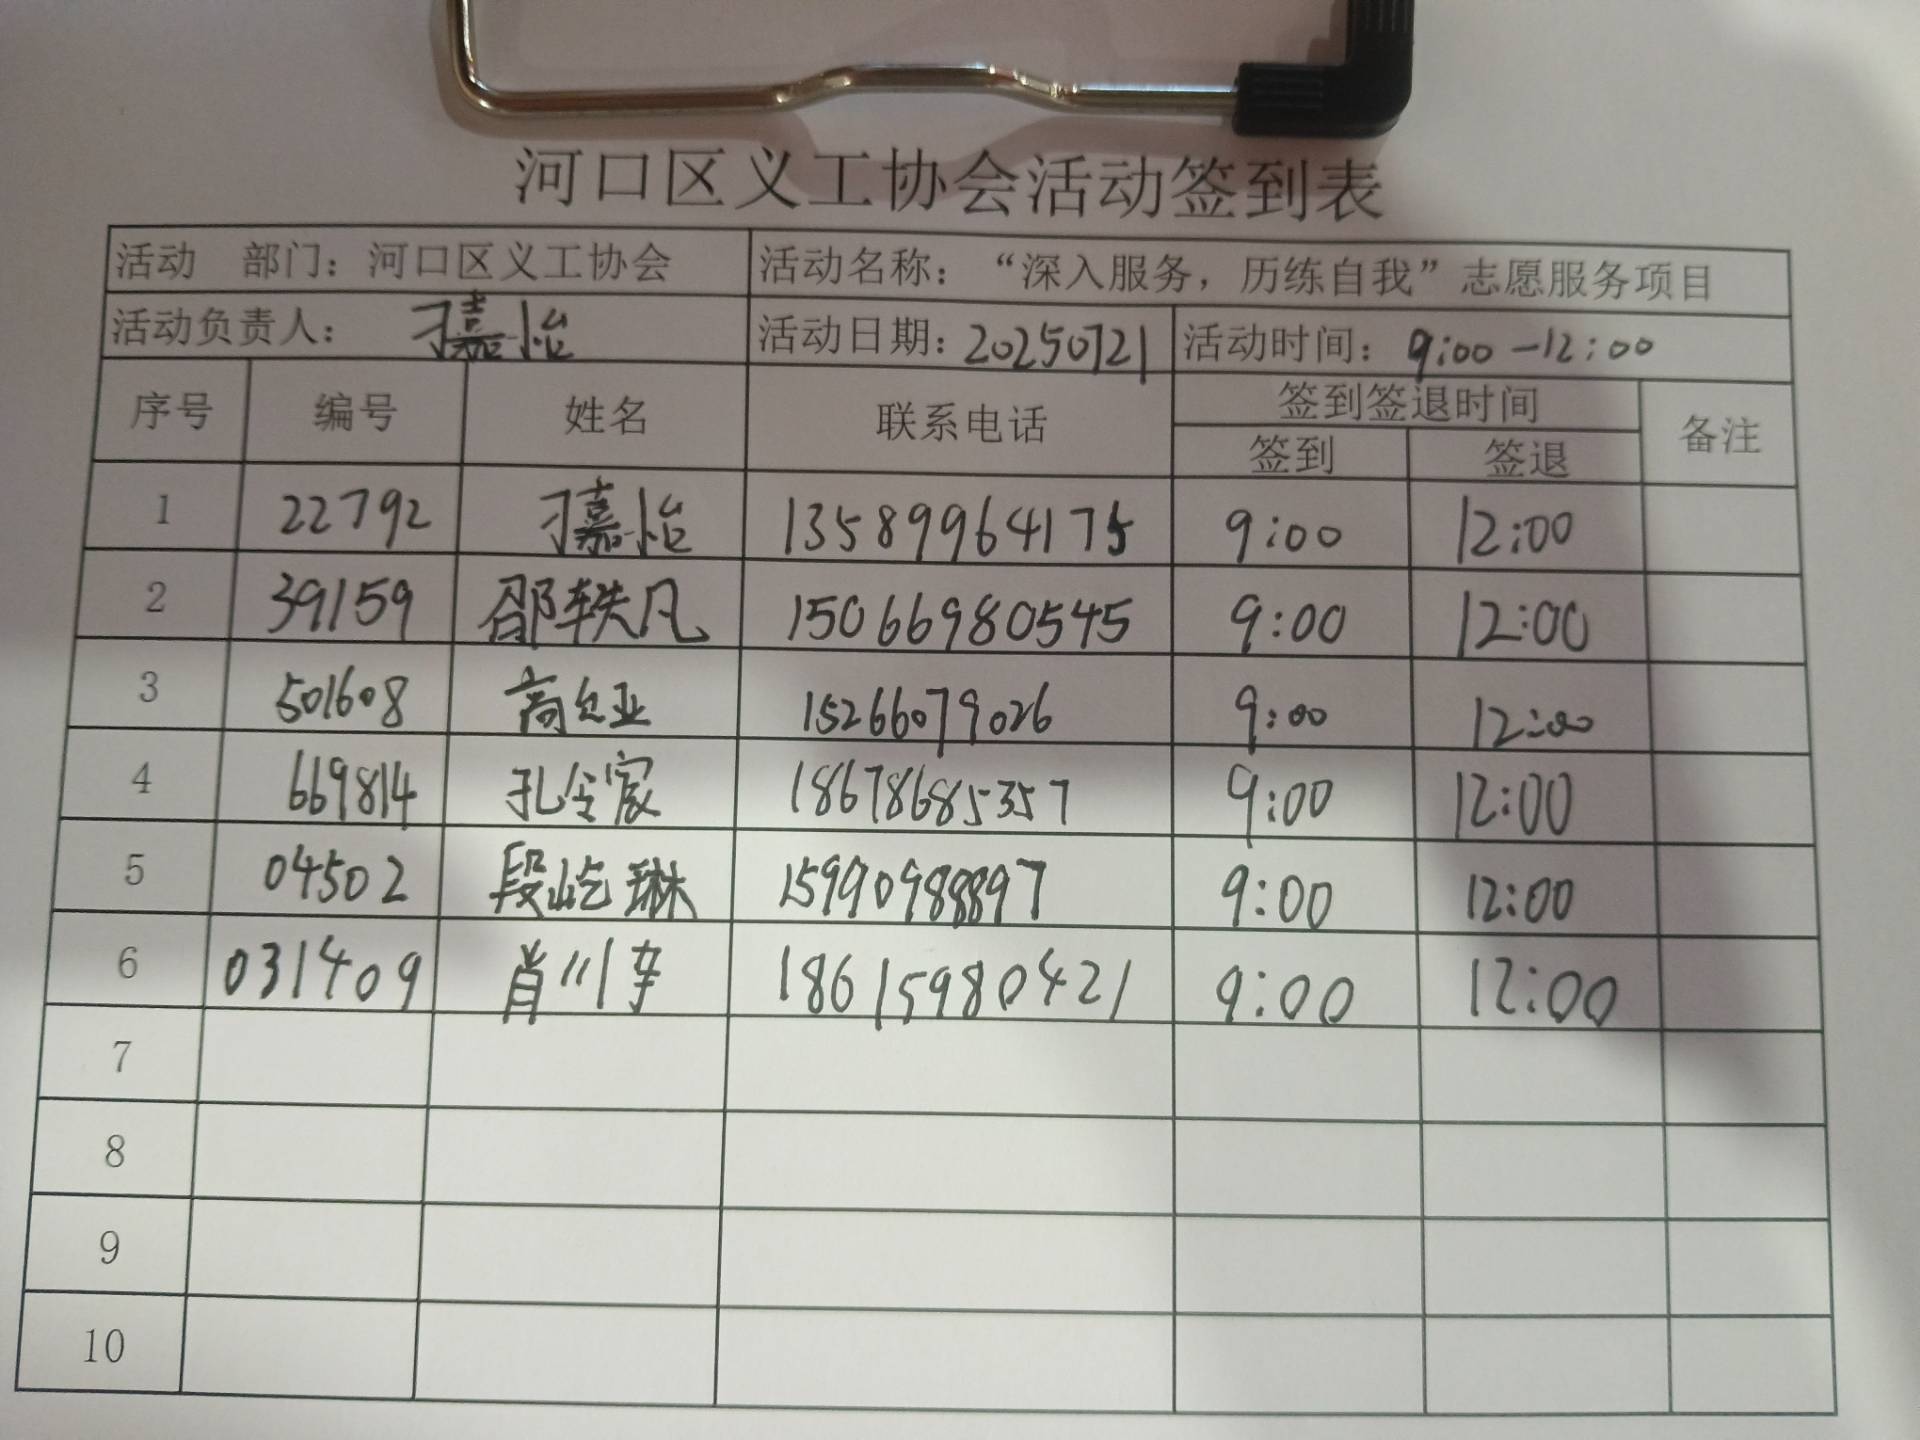 河口区义工协会活动签到表
活动 部门：河口区义工协会 活动名称：“深入服务，历练自我”志愿服务项目
活动负责人： 刁嘉怡 活动日期：20250721 活动时间：9:00-12:00
序号 编号 姓名 联系电话 签到签退时间 备注
签到 签退
1 22792 刁嘉怡 13589964175 9:00 12:00
2 39159 邵轶凡 15066980545 9:00 12:00
3 501608 15266079026 9:00 12:00
4 669814 孔令宸 18678685357 9:00 12:00
5 04502 段屹琳 15990988897 9:00 12:00
6 031409 肖川 18615980421 9:00 12:00
7
8
9
10